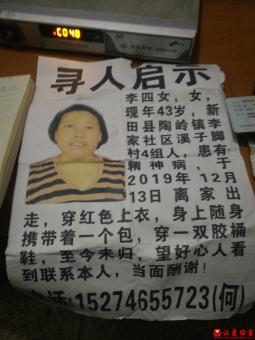 寻人启示
李四女，女，
现年43岁，新
田县陶岭镇李
家社区溪子脚
村4组人，患有
精神病，于
2019年12月
13日离家出
走，穿红色上衣，身上随身
携带着一个包，穿一双胶桶
鞋，至今未归，望好心人看
到联系本人，当面酬谢！
电话:15274655723(何)
让爱回家